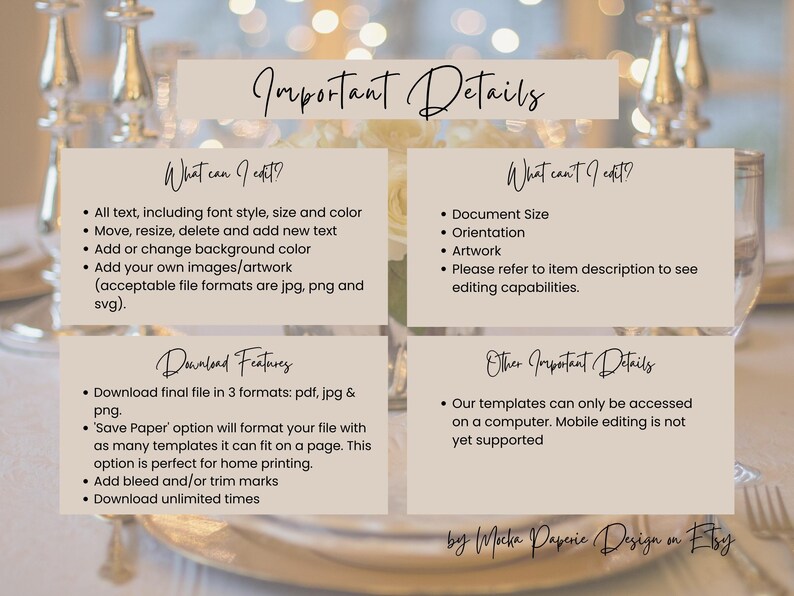 Important Details
What can I edit?
• All text, including font style, size and color
• Move, resize, delete and add new text
• Add or change background color
• Add your own images/artwork
(acceptable file formats are jpg, png and
svg).
What can't I edit?
• Document Size
• Orientation
• Artwork
• Please refer to item description to see
editing capabilities.
Download Features
• Download final file in 3 formats: pdf, jpg &
png.
• 'Save Paper' option will format your file with
as many templates it can fit on a page. This
option is perfect for home printing.
• Add bleed and/or trim marks
• Download unlimited times
Other Important Details
• Our templates can only be accessed
on a computer. Mobile editing is not
yet supported
by Mocka Paperie Design on Etsy